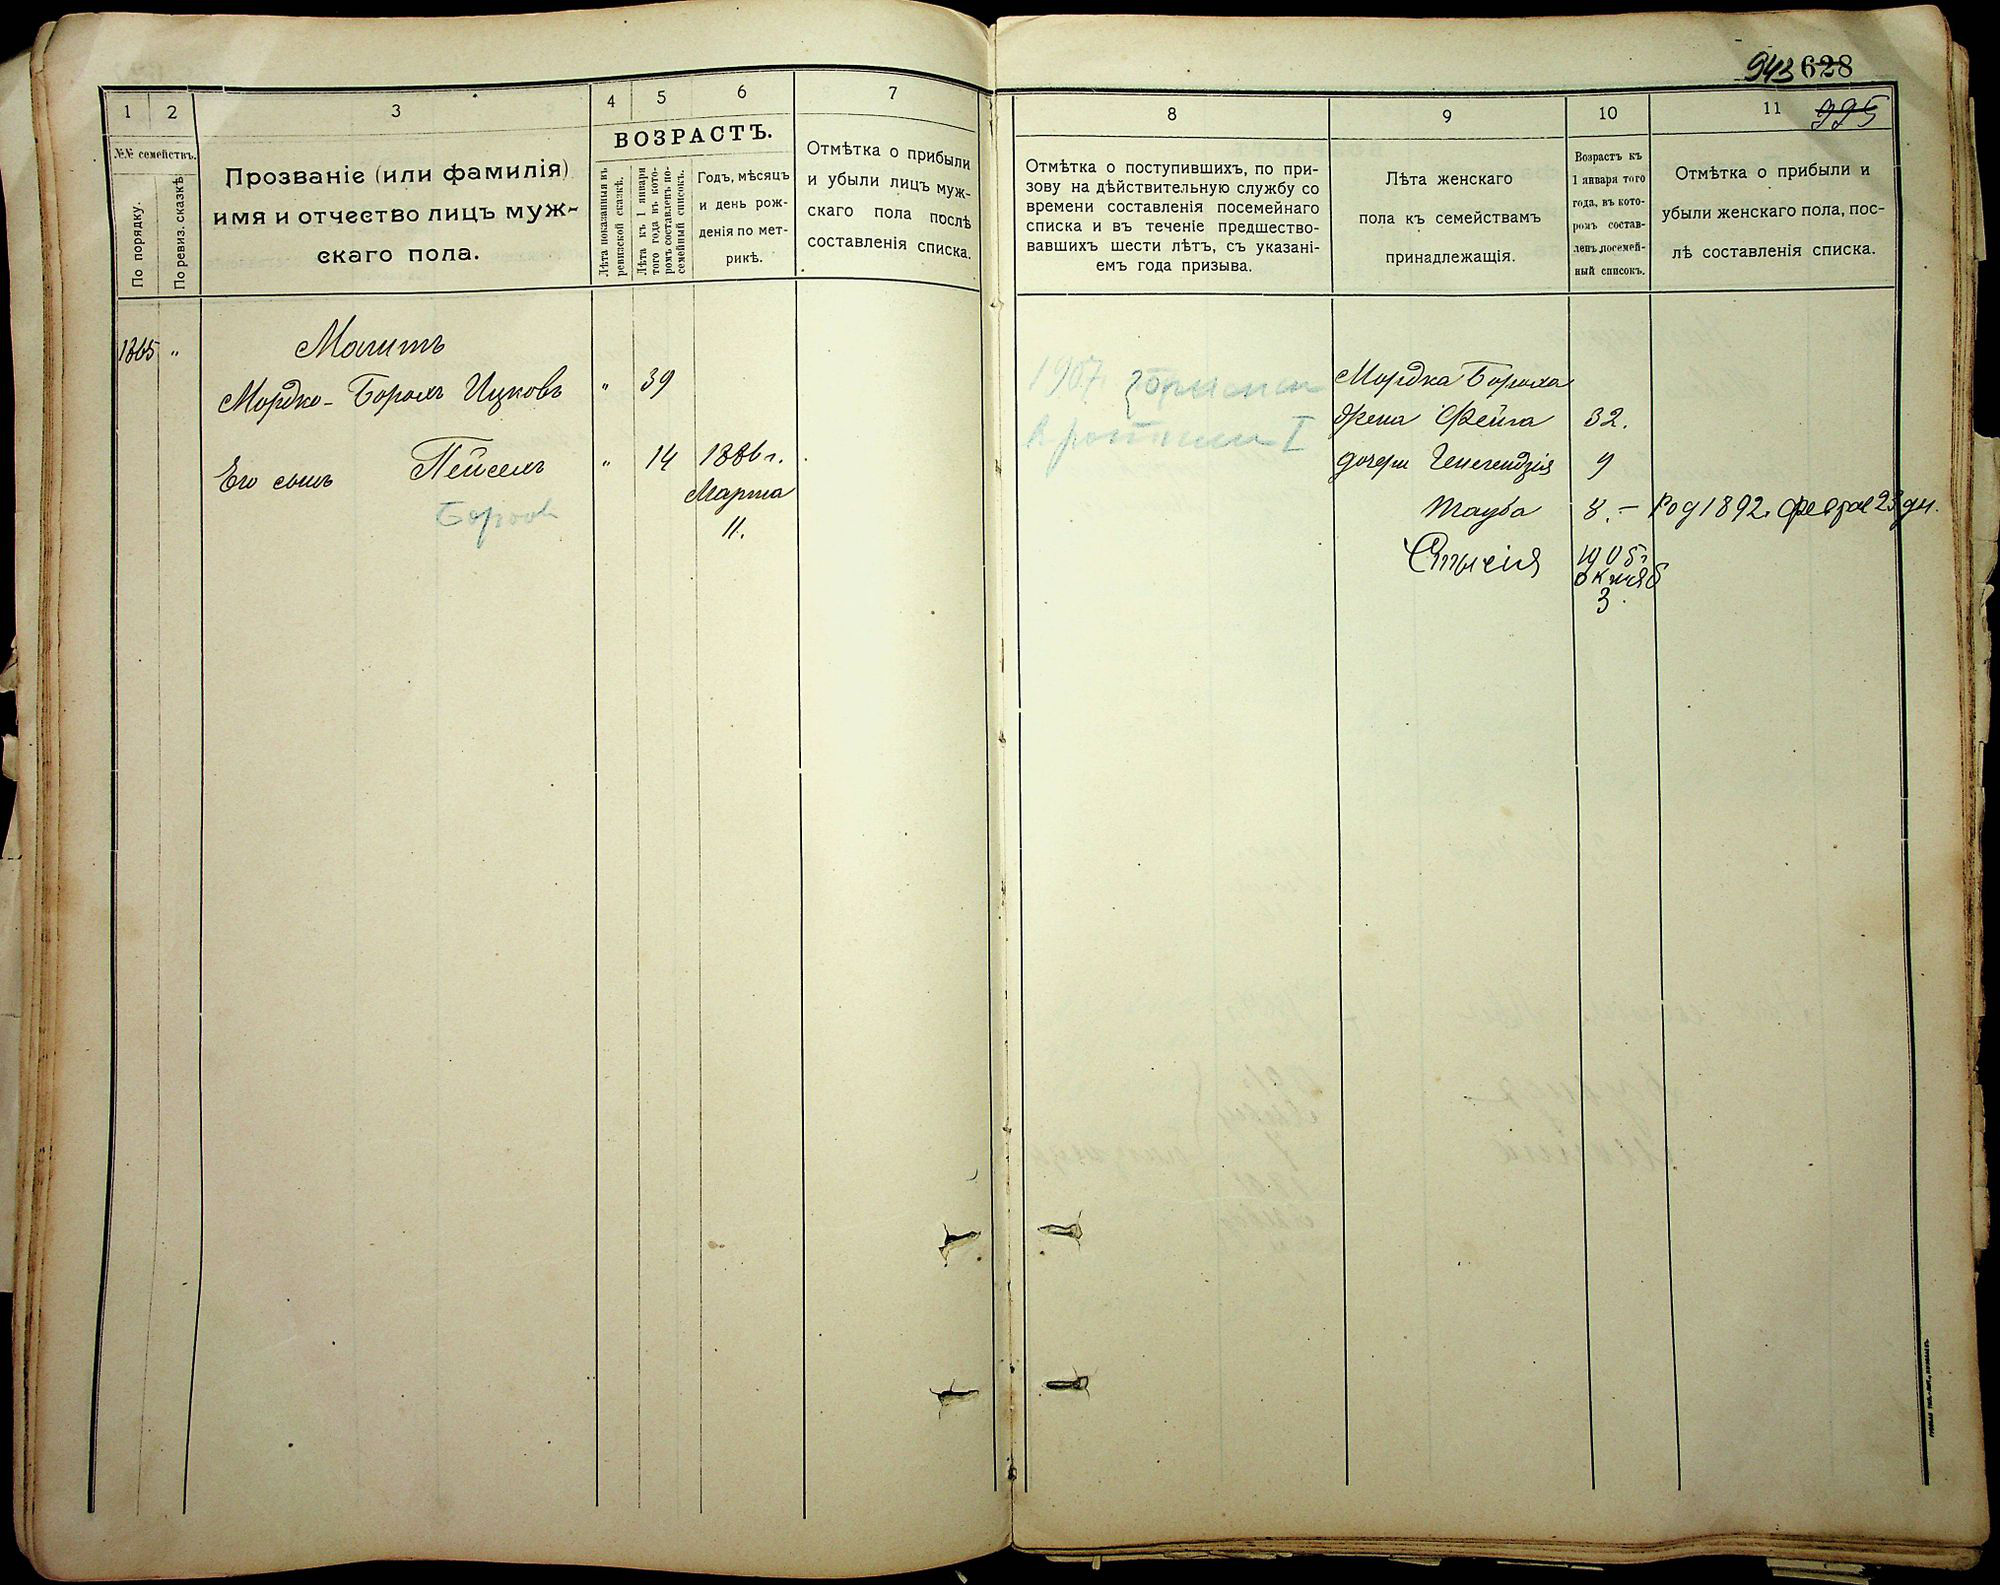 943 628
995
1
2
3
4
5
6
7
№№ семействъ.
По порядку.
По ревиз. сказкѣ
Прозваніе (или фамилія)
имя и отчество лицъ муж-
скаго пола.
ВОЗРАСТЪ.
Лѣта показанныя въ
ревизской сказкѣ.
Лѣта къ 1 января
того года въ кото-
ромъ составленъ по-
семейный списокъ.
Годъ, мѣсяцъ
и день рож-
денія по мет-
рикѣ.
Отмѣтка о прибыли
и убыли лицъ муж-
скаго пола послѣ
составленія списка.
1365 „
Мордко-Борохъ Ицковъ „ 39
Его сынъ Пейсехъ „ 14 1886 г.
Марта
11.
8
9
10
11
Отмѣтка о поступившихъ, по при-
зову на дѣйствительную службу со
времени составленія посемейнаго
списка и въ теченіе предшество-
вавшихъ шести лѣтъ, съ указані-
емъ года призыва.
Лѣта женскаго
пола къ семействамъ
принадлежащія.
Возрастъ къ
1 января того
года, въ кото-
ромъ состав-
ленъ посемей-
ный списокъ.
Отмѣтка о прибыли и
убыли женскаго пола, пос-
лѣ составленія списка.
1907
I
Мордка Бороха
жена Фейга 32.
дочери 9
Тауба 8. – Род 1892 г. февра 23 дн.
1905 г
октяб
3